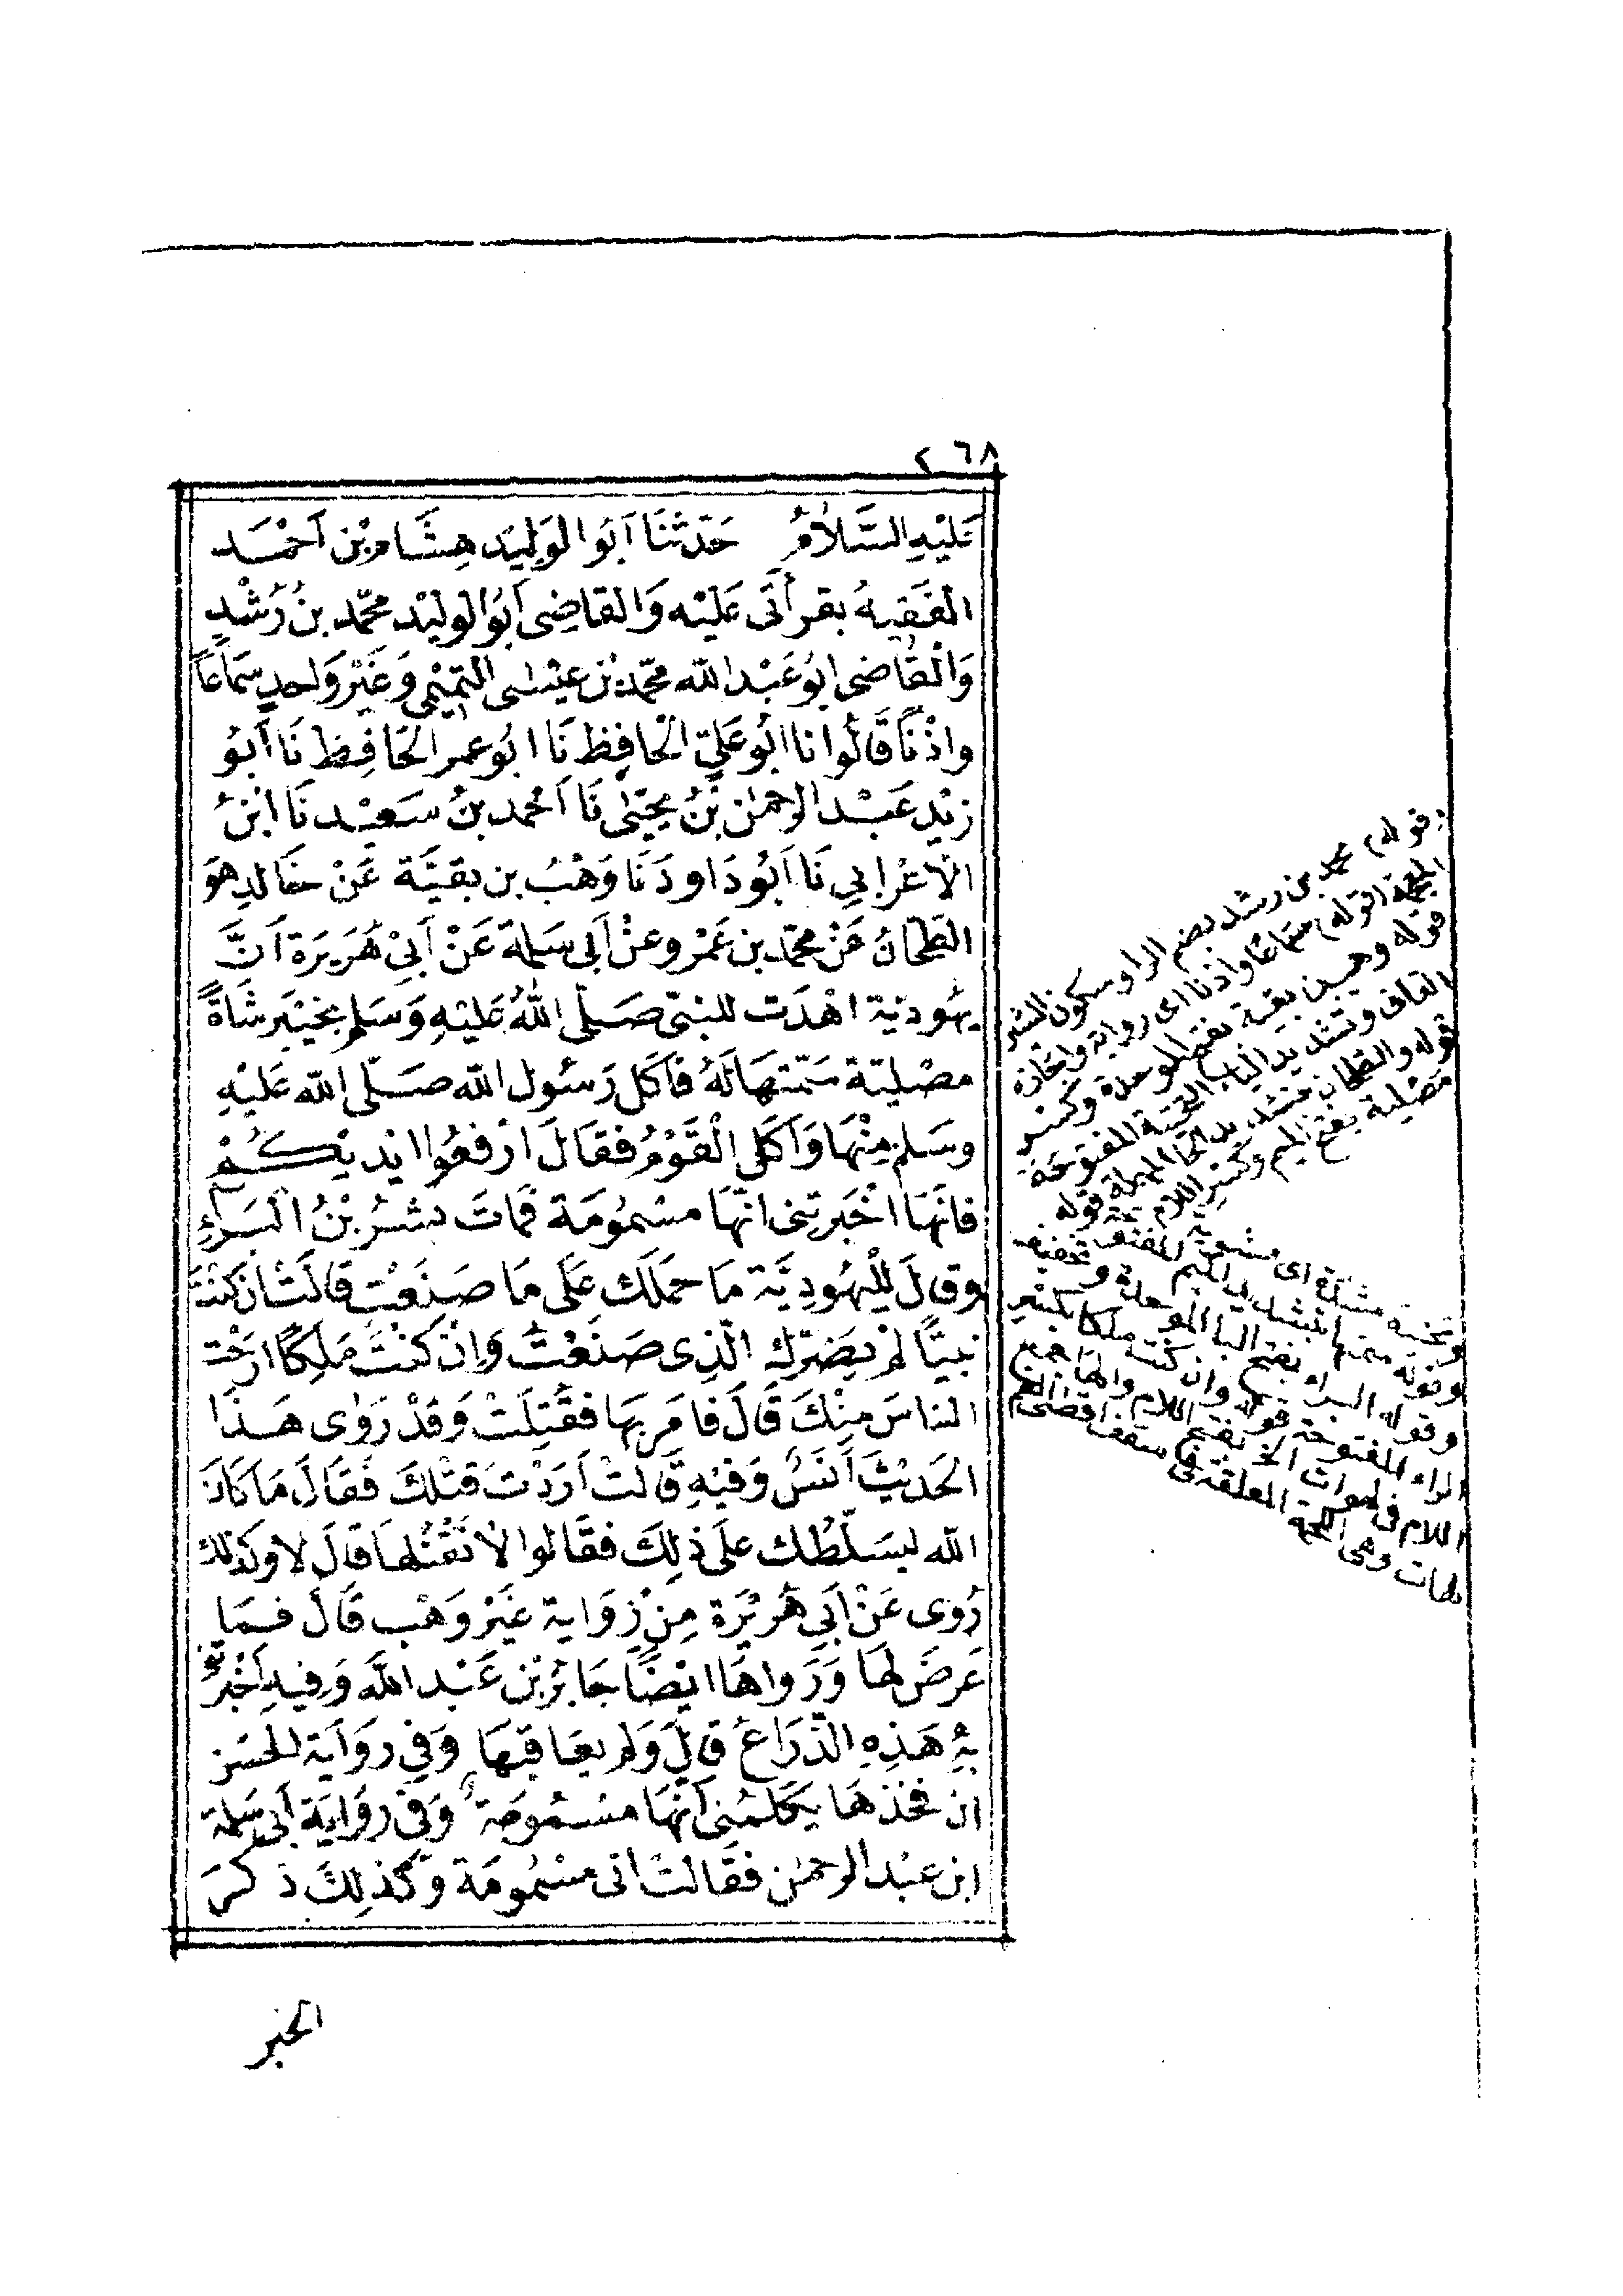 ٢٦٨
عَلَيْهِ السَّلَامُ حَدَّثَنَا أَبُو الْوَلِيدِ هِشَامُ بْنُ أَحْمَدَ
الْفَقِيهُ بقرأتى عَلَيْهِ وَالقَاضِى أَبُو الوليد محمّد بنُ رُشْدٍ
وَالْقَاضِى ابُو عَبْد الله محمّد بْن عيْسٰى التميْمى وَغَيْرُ وَاحدٍ سَمَاعًا
واذْنًا قَالُوا نا ابُو عَلِيّ الْحَافِظ نَا ابُو عمر الحَافِظ نَا أَبُو
زَيْدٍ عَبْد الرحمٰن بْنُ يحيَىٰ نَا أَحْمد بنُ سَعِيْد نَا ابْنُ
الْأَعْرَابِي نَا أَبُو دَاود نَا وَهْبُ بن بقيَّة عَنْ خَالد هُوَ
الطحَّانُ عَنْ محمّد بن عَمْرو عنْ أَبى سَلمة عَنْ أَبِىْ هُرَيرَة أَنَّ
يهُوديّة اهْدَت للنبىّ صَلّى اللهُ عَليْهِ وَسَلم بخيْبَر شَاةً
مصْليّة سَمّتهَا لَهُ فَأَكَل رَسُول الله صَلّى الله عَليْهِ
وسَلم مِنْهَا وَأَكَل الْقَوْمُ فقَالَ ارْفعُوا ايديْكُمْ
فانَهَا اخْبَرتنى انّهَا مسْمُومَة فمَاتَ بشرُ بْنُ الْبَرَاءِ
وقالَ لِلْيهُودِيَّة مَا حَمَلَكِ عَلَى مَا صَنَعْتِ قَالَتْ ان كنْتَ
نَبِيًّا لمْ يَضرّك الّذِى صَنَعْتُ وَاِنْ كنْتَ مَلِكًا ارَحْت
الناسَ مِنْكَ قَالَ فامَر بهَا فقُتِلَتْ وَقَدْ رَوٰى هَذَا
الحَديْثَ أَنَسٌ وَفيْهِ قَالَتْ أَرَدْت قتْلكَ فَقَالَ مَا كَانَ
الله ليسَلّطك عَلَى ذلِكَ فقَالوا الا نَقْتُلهَا قَالَ لا وكذلك
رُوى عَنْ أَبِى هُريْرَة مِنْ رِوَاية غيْر وَهْب قَالَ فمَا
عَرضَ لهَا وَرَوَاهَا ايْضًا جَابرُ بْن عَبْد اللهِ وَفيهِ أَخْبَرتْنى
بهِ هَذِهِ الذّرَاعُ قالَ وَلم يعَاقبْهَا وَفِى رِوَاية الحسَن
ان فخذهَا يكلّمُنى أَنّهَا مسْمُومَة وَفِى رِوَايَة أَبِى سَلمة
ابن عبْد الرحمٰن فقَالتْ انى مسْمُومَة وَكَذلِكَ ذكرَ
(قوله) محمد بن رشد بضم الرا وسكون الشين
المعجمة (قوله) سماعًا واذنا اى رواية واجازة
قوله وهب بن بقية بفتح الموحدة وكسر
القاف وتشديد الياء التحتية المفتوحة
قوله والطحان بتشديد الحا المهملة قوله
مصلية بفتح الميم وكسر اللام
وتحتية مشددة اى مشوية
وقوله سمتها بتشديد الميم المفتوحة
وقوله البراء بفتح البا الموحدة وتخفيف
الراء المفتوحة قوله وان كنت ملكا بكسر
اللام فى لهوات الخ بفتح اللام والها جمع
لهات وهى اللحمة المعلقة فى سقف اقصى الفم
الخبر